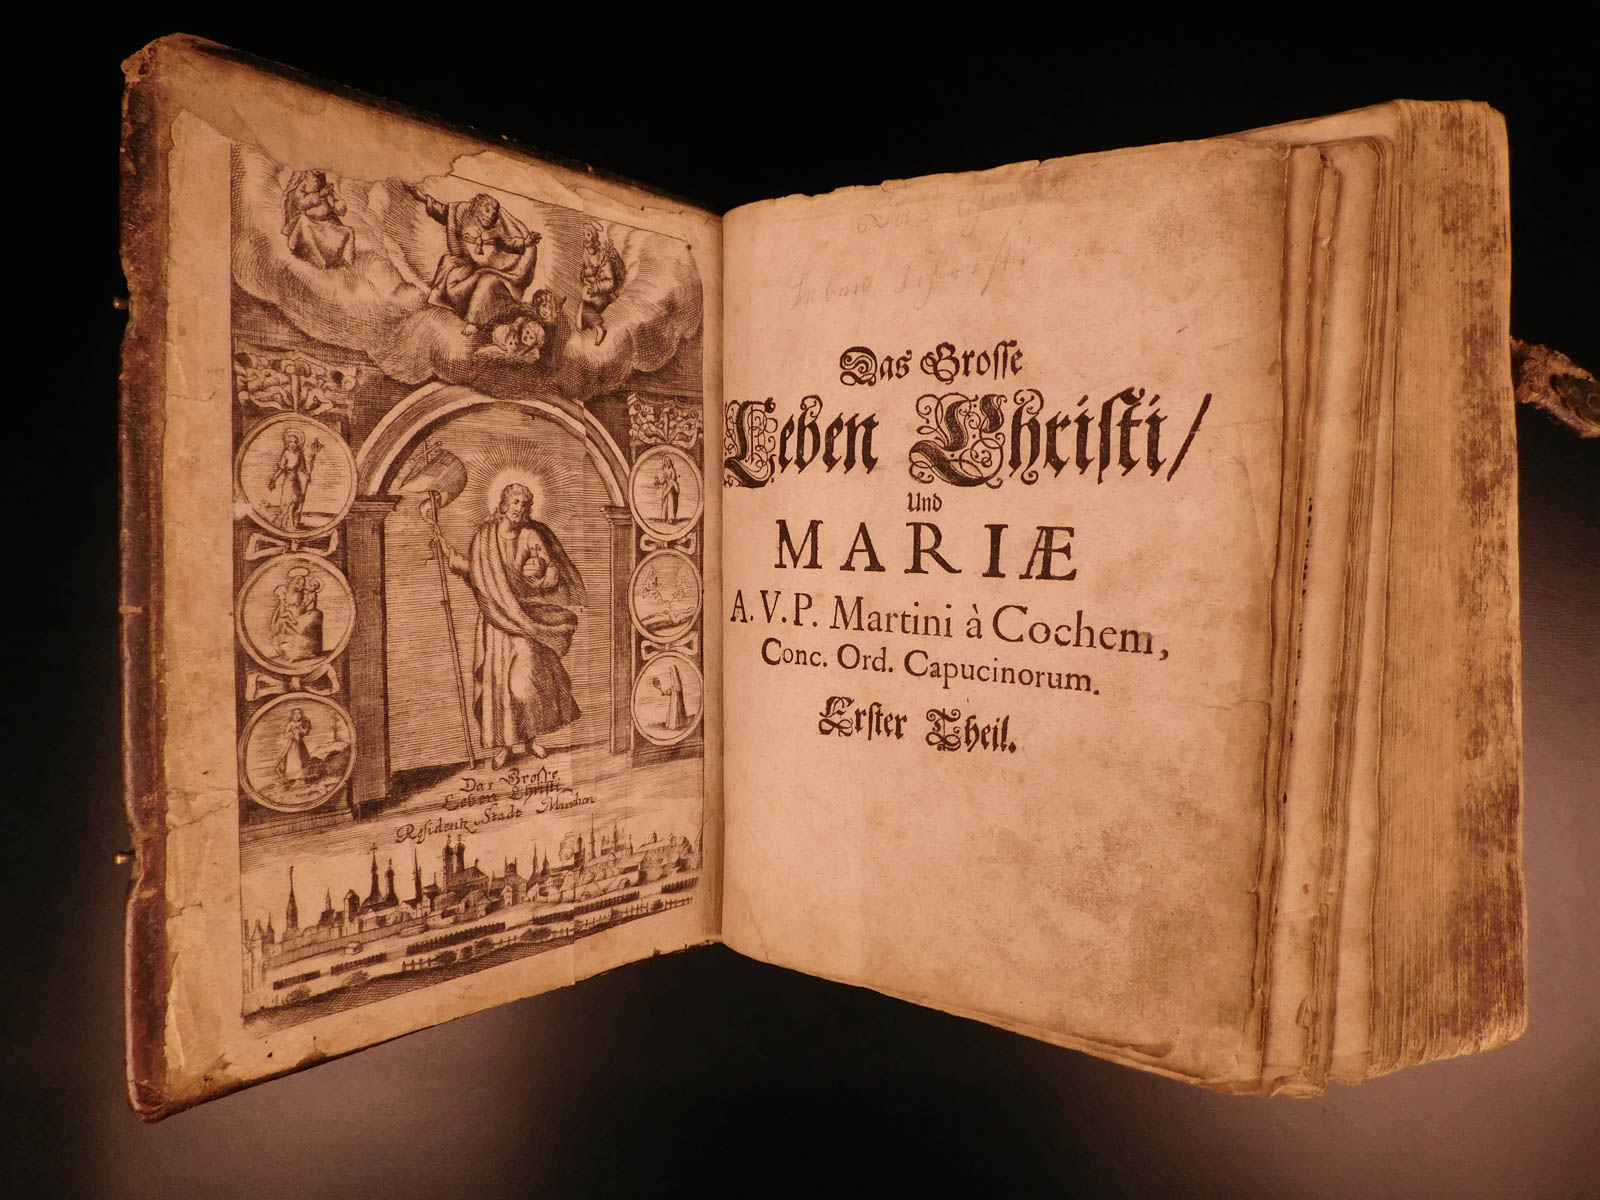 Das Grosse
Leben Christi
Residentz Stadt München
Das Grosse
Leben Christi
Das Grosse
Leben Christi/
Und
MARIÆ
A. V. P. Martini à Cochem,
Conc. Ord. Capucinorum.
Erster Theil.